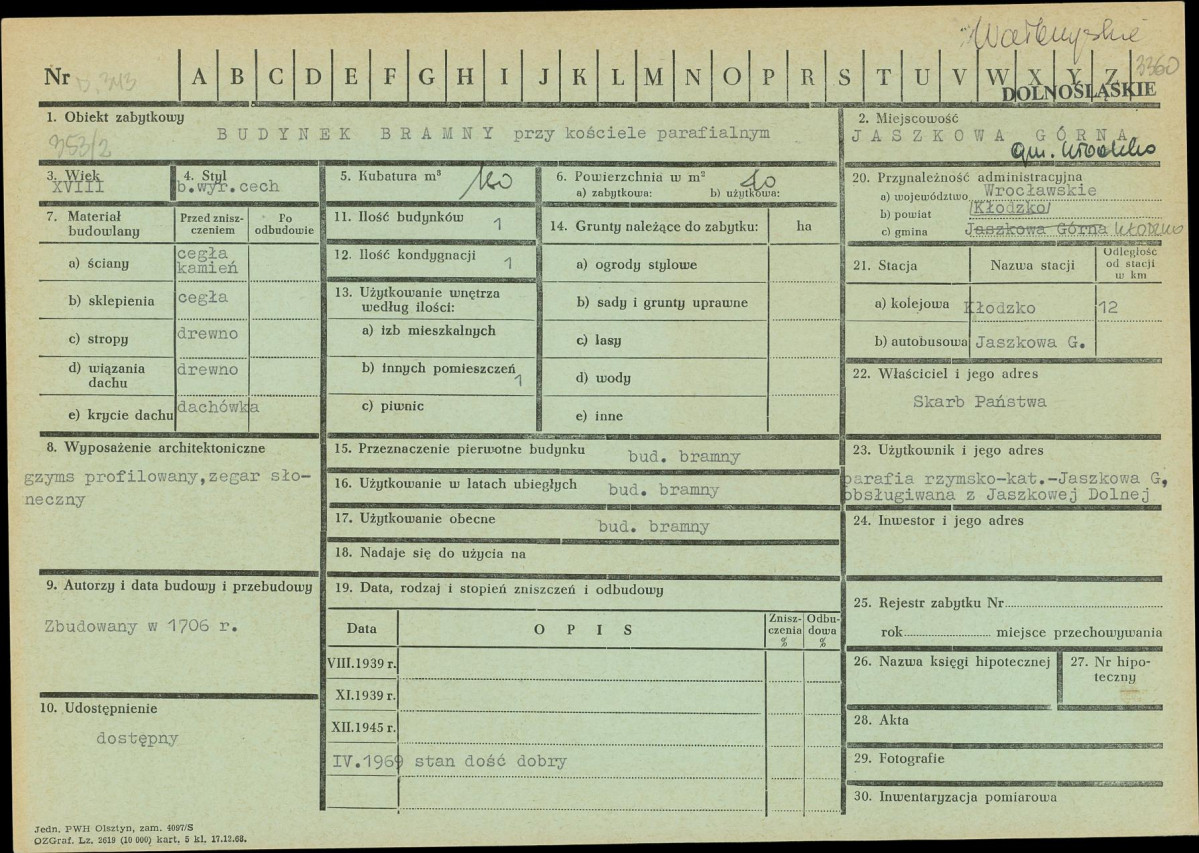 Wałbrzyskie
Nr D. 343 A B C D E F G H I J K L M N O P R S T U V W X Y Z 3360
DOLNOŚLĄSKIE
1. Obiekt zabytkowy
353/2
BUDYNEK BRAMNY przy kościele parafialnym
2. Miejscowość
JASZKOWA GÓRNA
gm. Kłodzko
3. Wiek
XVIII
4. Styl
b.wyr.cech
5. Kubatura m³
6. Powierzchnia w m²
a) zabytkowa: b) użytkowa:
20. Przynależność administracyjna
a) województwo Wrocławskie
b) powiat /Kłodzko/
c) gmina Jaszkowa Górna KŁODZKO
7. Materiał budowlany
Przed znisz-
czeniem
Po
odbudowie
a) ściany cegła
kamień
b) sklepienia cegła
c) stropy drewno
d) wiązania
dachu drewno
e) krycie dachu dachówka
11. Ilość budynków 1
12. Ilość kondygnacji 1
13. Użytkowanie wnętrza
według ilości:
a) izb mieszkalnych
b) innych pomieszczeń 1
c) piwnic
14. Grunty należące do zabytku: ha
a) ogrody stylowe
b) sady i grunty uprawne
c) lasy
d) wody
e) inne
21. Stacja Nazwa stacji Odległość
od stacji
w km
a) kolejowa Kłodzko 12
b) autobusowa Jaszkowa G.
22. Właściciel i jego adres
Skarb Państwa
8. Wyposażenie architektoniczne
gzyms profilowany,zegar sło-
neczny
15. Przeznaczenie pierwotne budynku bud. bramny
16. Użytkowanie w latach ubiegłych bud. bramny
17. Użytkowanie obecne bud. bramny
18. Nadaje się do użycia na
23. Użytkownik i jego adres
parafia rzymsko-kat.-Jaszkowa G,
obsługiwana z Jaszkowej Dolnej
24. Inwestor i jego adres
9. Autorzy i data budowy i przebudowy
Zbudowany w 1706 r.
19. Data, rodzaj i stopień zniszczeń i odbudowy
Data OPIS Znisz-
czenia
% Odbu-
dowa
%
VIII.1939 r.
XI.1939 r.
XII.1945 r.
IV.1969 stan dość dobry
25. Rejestr zabytku Nr
rok miejsce przechowywania
26. Nazwa księgi hipotecznej
27. Nr hipo-
teczny
10. Udostępnienie
dostępny
28. Akta
29. Fotografie
30. Inwentaryzacja pomiarowa
Jedn. PWH Olsztyn, zam. 4097/S
OZGraf. Lz. 2619 (10 000) kart, 5 kl. 17.12.68.